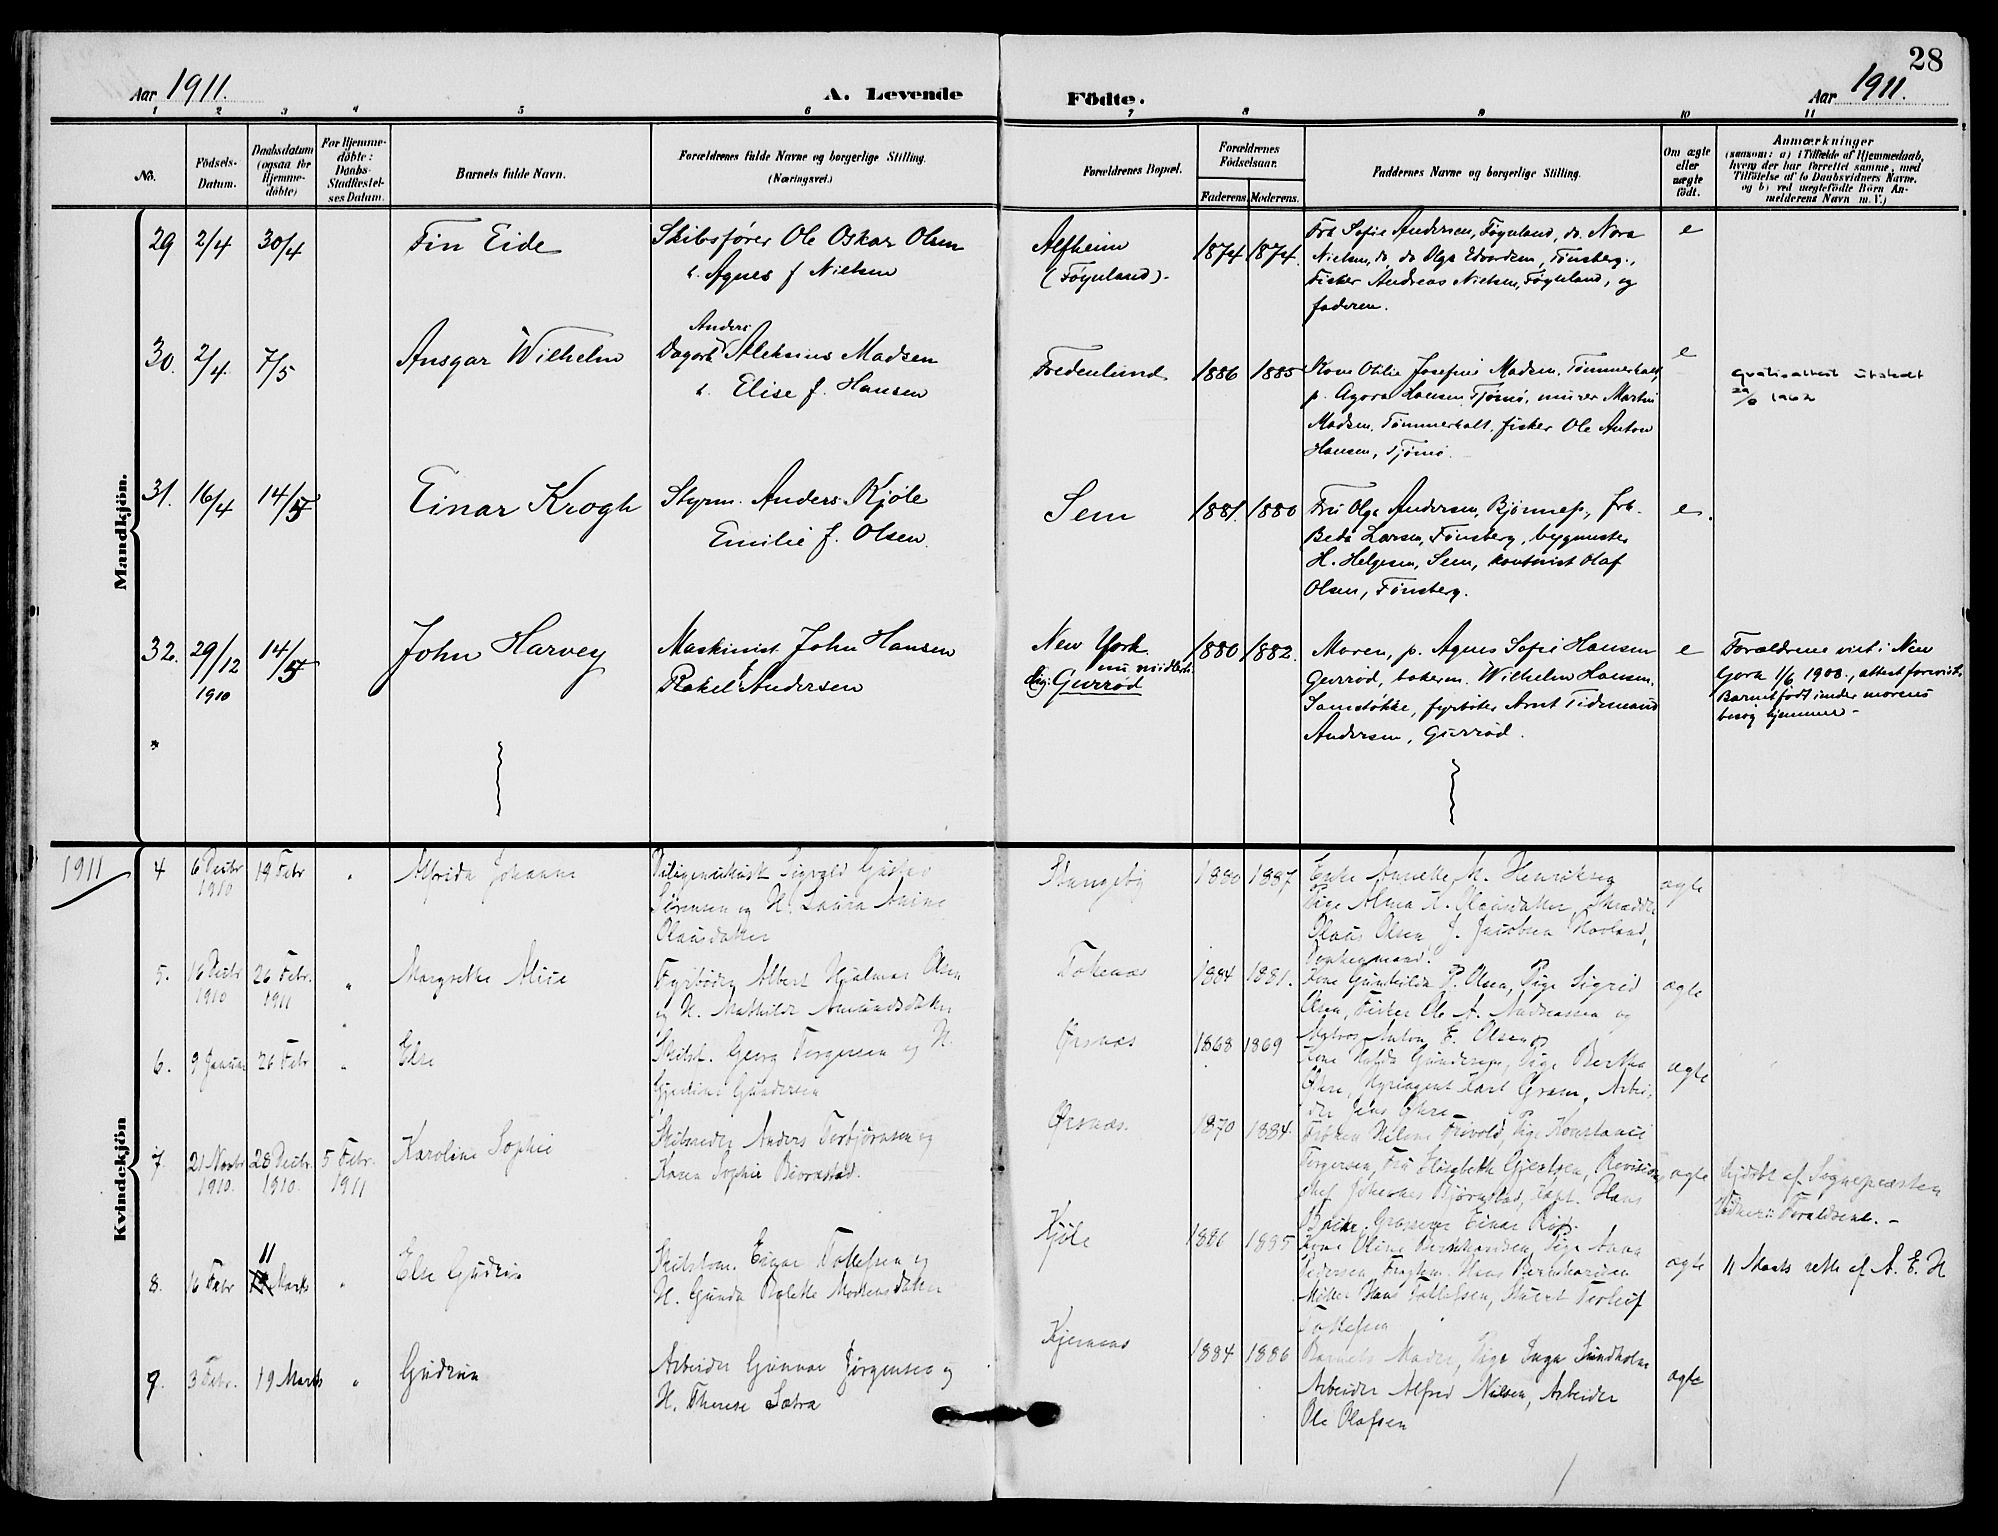 28
Aar 1911.
A. Levende
Födte.
Aar 1911.
1 2 3 4 5 6 7 8 9 10 11
No.
Födsels-
Datum.
Daabsdatum
(ogsaa for
Hjemme-
döbte)
For Hjemme-
döbte:
Daabs-
Stadfæstel-
ses Datum.
Barnets fulde Navn.
Forældrenes fulde Navne og borgerlige Stilling.
(Næringsvei.)
Forældrenes Bopæl.
Forældrenes
Födselsaar.
Faderens. Moderens.
Faddernes Navne og borgerlige Stilling.
Om ægte
eller
uægte
födt.
Anmærkninger
(saasom: a) i Tilfælde af Hjemmedaab,
hvem der har forrettet samme, med
Tilföielse af to Daabsvidners Navne,
og b) ved uægtefödte Börn An-
melderens Navn m. V.)
Mandkjön.
29 2/4 30/4
Fin Eide
Skibsfører Ole Oskar Olsen
Agnes f Nielsen
Alfheim
(Føynland).
1874 1874.
Frk Sofie Andersen, Føynland, do. Nora
Nielsen, do do Olga Edvardsen, Tønsberg.,
Fisker Andreas Nielsen, Føynland, og
faderen.
e
30. 2/4. 7/5
Ansgar Wilhelm
Anders
Dagarb Aleksius Madsen
Elise f. Hansen
Fredenlund
1886 1885
Kone Otilie Josefine Madsen, Tømmerholt,
p. Agora Hansen, Tjømø, murer Martin
Madsen, Tømmerholt, fisker Ole Anton
Hansen, Tjømø.
e
Gratisattest utstedt
1962
31. 16/4 14/5
Einar Krogh
Styrm. Anders Kjøle
Emilie f. Olsen.
Sem
1881. 1880
Fru Olga Andersen, Bjønnes., frk.
Beda Larsen, Tønsberg, bygmester
H. Helgesen, Sem, kontorist Olaf
Olsen, Tønsberg.
e.
32. 29/12 14/5
1910
John Harvey
Maskinist John Hansen
Rakel f Andersen
New York.
nu midlert.
Gurrød
1880 1882.
Moren, p. Agnes Sofie Hansen
Gurrød, bakerm. Wilhelm Hansen,
Samstøkke, fyrbøter Arnt Tidemand
Andersen, Gurrød.
e
Forældrene viet i New
York 1/6 1908., attest forevist.
Barnet født under morens
besøg hjemme -
1911
Kvindekjön
4 6 Decbr 1910 19 Febr "
Alfrida Johanne
Sigvald Gustav
Sørensen og H. Laura Anine
Olausdatter
Stangeby
1880 1887
Enke Annette M. Henriksen
Pige Alma A. Olausdatter, Skrædder
Olaus Olsen, J. Jacobsen Havland,
ægte
5. 18 Decbr 1910 26 Febr. 1911 "
Margrethe Alice
Fyrbøder Albert Hjalmar Olsen
og H. Mathilde Amundsdatter
Torenæs
1884 1881.
Kone Gunhilda P. Olsen, Pige Sigrid
Olsen, Fisker Ole A. Andreassen og
Matros Anton F. Olsen
ægte
6. 9 Januar 26 Febr "
Else
Skibsf. Georg Torgersen og H.
Gundersen
Ørsnæs
1868 1869
Kone Hulda Gundersen, Pige Bertha
Øhre, Hyreagent Carl Gram, Arbei-
der Jens Øhre
ægte
7. 21 Novbr 1910. 28 Decbr. 1910. 5 Febr. 1911
Karoline Sophie
Skibsreder Anders Torbjørnsen og
Karen Sophie Bjørnstad.
Ørsnæs.
1870 1884.
Frøken Milene Frivold, Pige Konstance
Torgersen, Fru Elisabeth Gjertsen, Revisions
chef Johannes Bjørnstad, Capt. Hans
Bache, Grosserer Einar
ægte
Hjdøbt af Sognepræsten
Vidner: Forældrene. -
8. 16 Febr 11 Marts "
Else Gudrun
Skibstøm. Einar Tollefsen og
H. Gunda Mathea
Kjøle
1886 1885
Kone Oline Bernhardsen, Pige Anna
Pedersen, Hans Bernhardsen
Hans Tollefsen,
Tollefsen
ægte
11 Marts rette af A. E. H
9. 3 Febr. 19 Marts "
Gudrun
Arbeider Gunnar Jørgensen og
H. Therese Sætra
Kjernæs
1884 1886
Barnets Moder, Pige Inga Sundholm
Arbeider Alfred Nilsen, Arbeider
Ole Olafsen
ægte